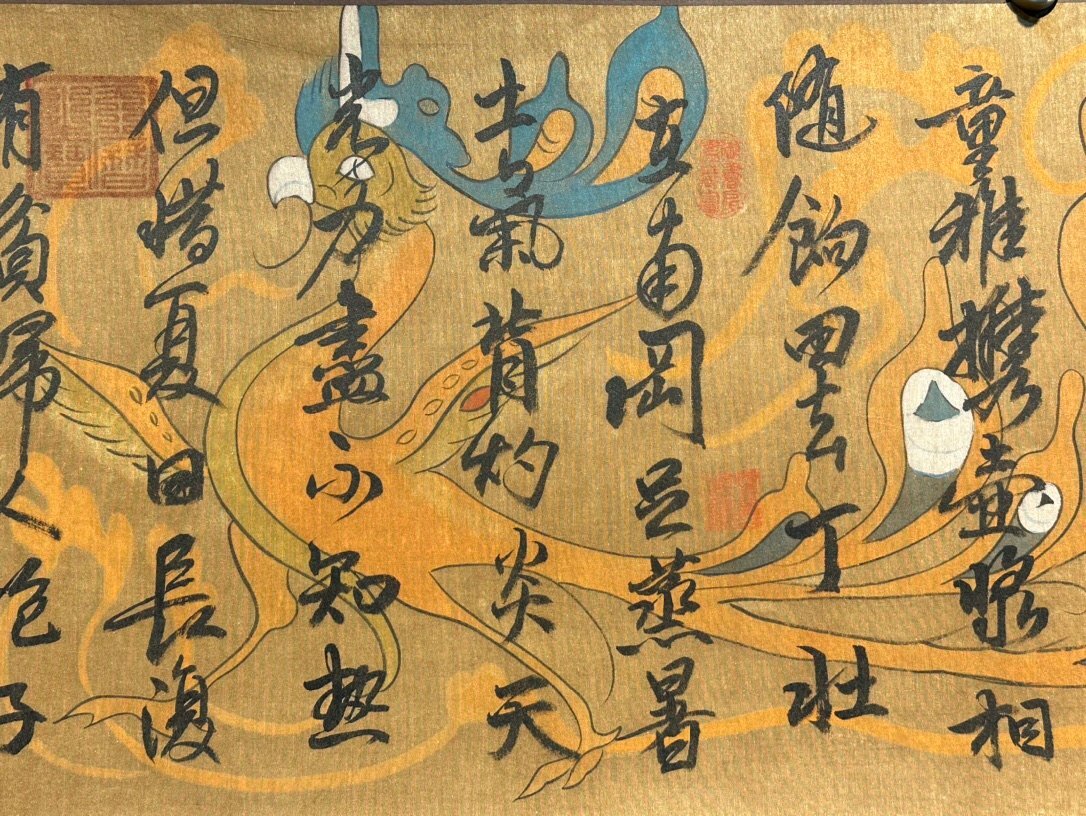 童稚携壺漿相
随餉田去丁壮
在南岡足蒸暑
土氣背灼炎天
光力盡不知热
但惜夏日長復
有貧婦人抱子